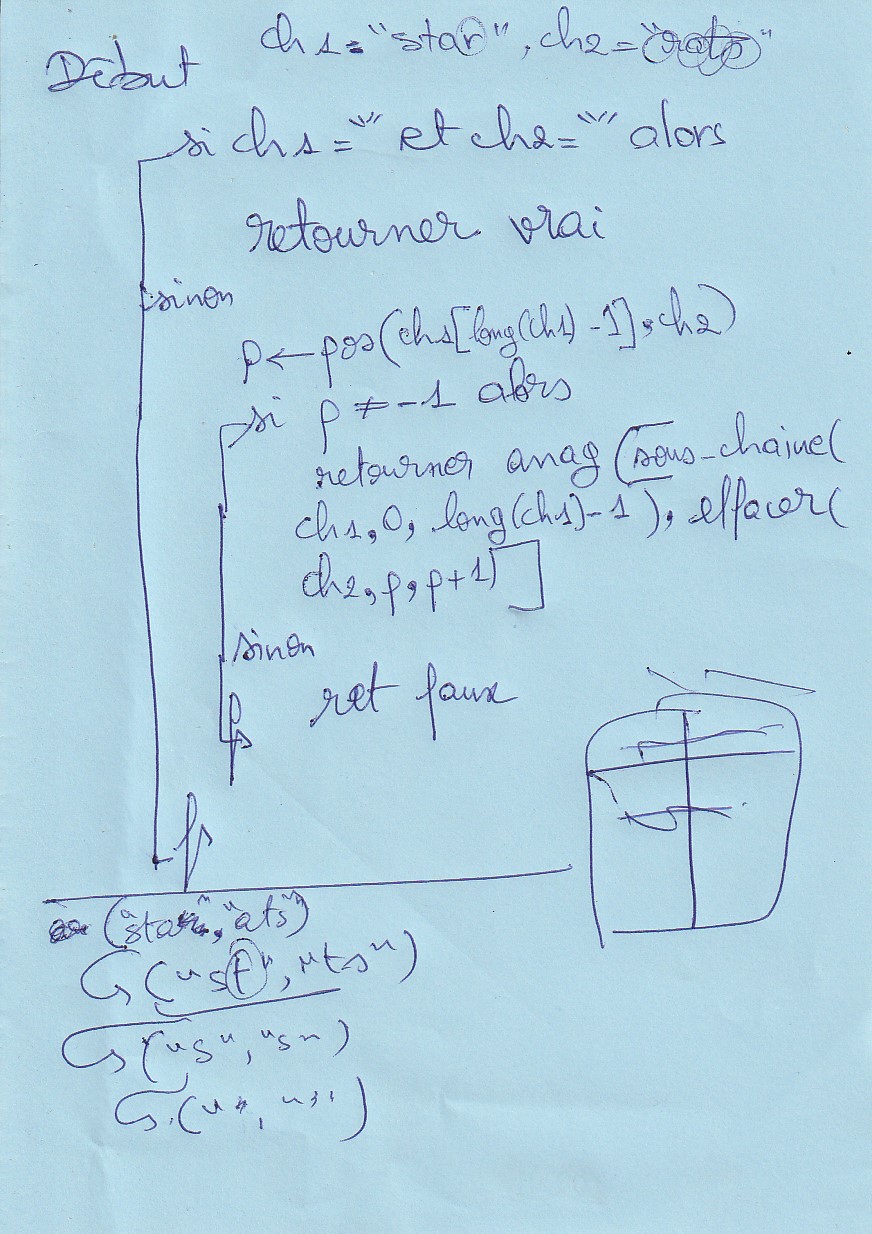 ch1="star", ch2="rats"
Début
si ch1="" et ch2="" alors
retourner vrai
sinon
p←pos(ch1[long(ch1)-1],ch2)
si p≠-1 alors
retourner anag(sous-chaine(
ch1,0,long(ch1)-1), effacer(
ch2,p,p+1)]
sinon
ret faux
fs
fs
("sta","ats")
("st","ts")
("s","s")
("","")